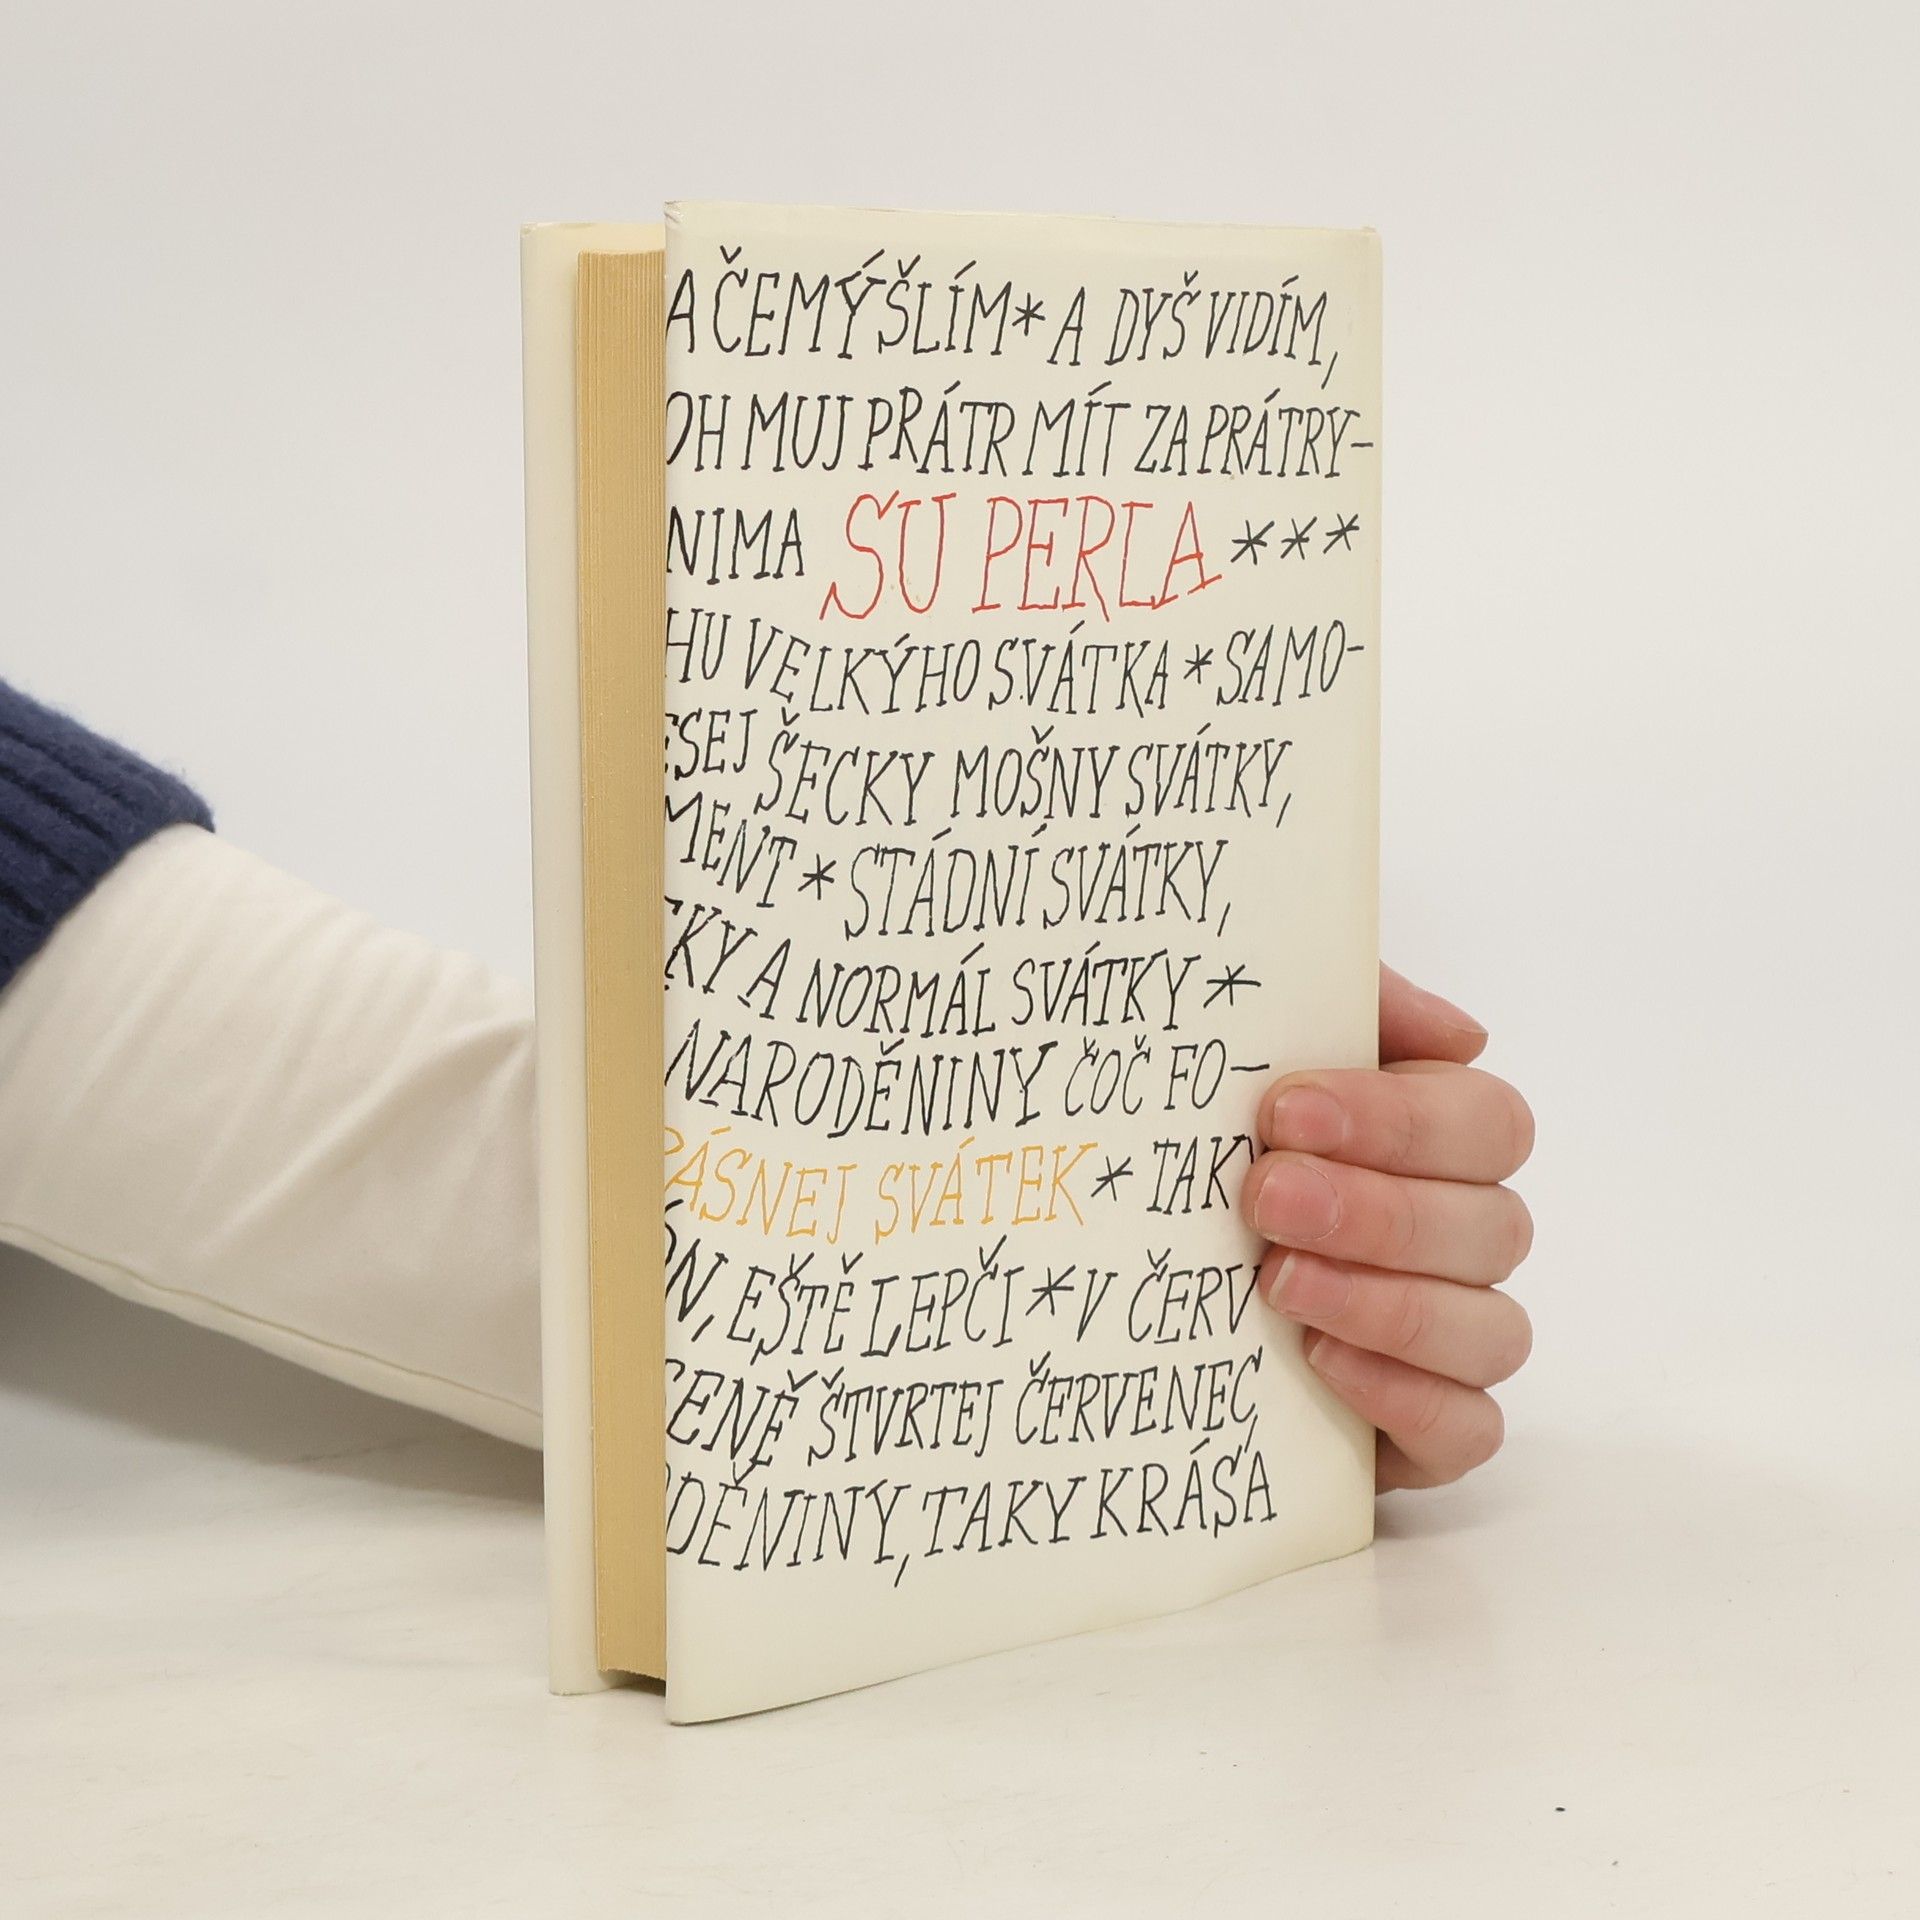 A ČEMÝŠLÍM * A DYŠ VIDÍM,
MUJ PRÁTR MÍT ZA PRÁTRY-
NIMA SU PERLA * * *
VELKÝHO SVÁTKA * SAMO-
ŠECKY MOŠNY SVÁTKY,
MENT * STÁDNÍ SVÁTKY,
KY A NORMÁL SVÁTKY *
NARODĚNINY ČOČ FO-
ÁSNEJ SVÁTEK * TAKY
N, EŠTĚ LEPČI * V ČERV
ENĚ ŠTVRTEJ ČERVENEC,
DĚNINY, TAKY KRÁSA